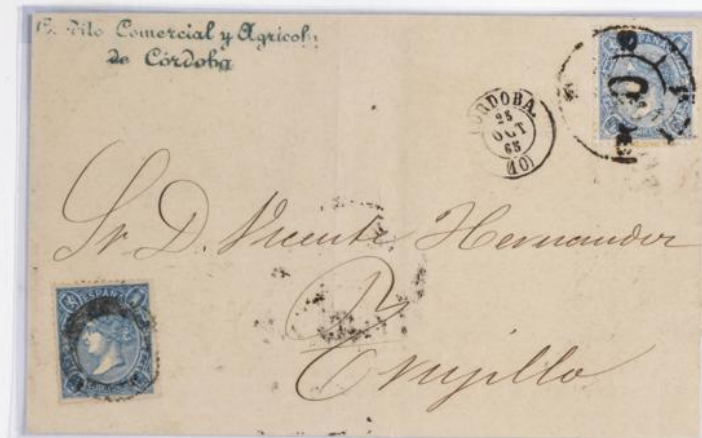 Crédito Comercial y Agricola
de Córdoba
ESPAÑA
CORDOBA.
25
OCT
65
(10)
10
Sr. D. Vicente Hernandez
Trujillo
ESPAÑA